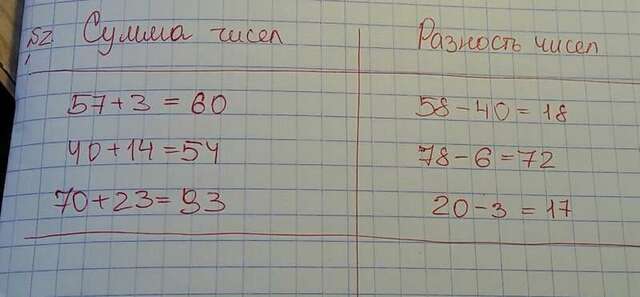 №2. Сумма чисел
57 + 3 = 60
40 + 14 = 54
70 + 23 = 93
Разность чисел
58 - 40 = 18
78 - 6 = 72
20 - 3 = 17